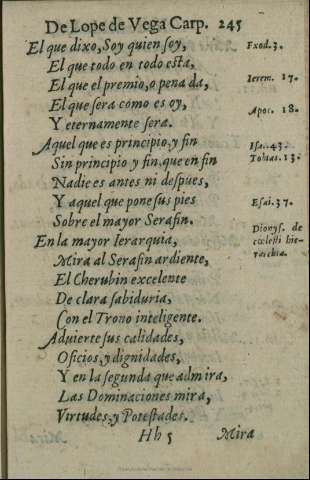 De Lope de Vega Carp. 245
El que dixo, Soy quien soy, Exod. 3.
El que todo en todo esta,
El que el premio, o pena da, Ierem. 17.
El que sera como es oy, Apoc. 18.
Y eternamente sera.
Aquel que es principio, y fin Isai. 43.
Sin principio y fin, que en fin Tobias. 13.
Nadie es antes ni despues,
Y aquel que pone sus pies Esai. 37.
Sobre el mayor Serafin.
En la mayor Ierarquia, Dionys. de cœlesti hierarchia.
Mira al Serafin ardiente,
El Cherubin excelente
De clara sabiduria,
Con el Trono inteligente.
Advierte sus calidades,
Oficios, y dignidades,
Y en la segunda que admira,
Las Dominaciones mira,
Virtudes, y Potestades.
Hh 5 Mira